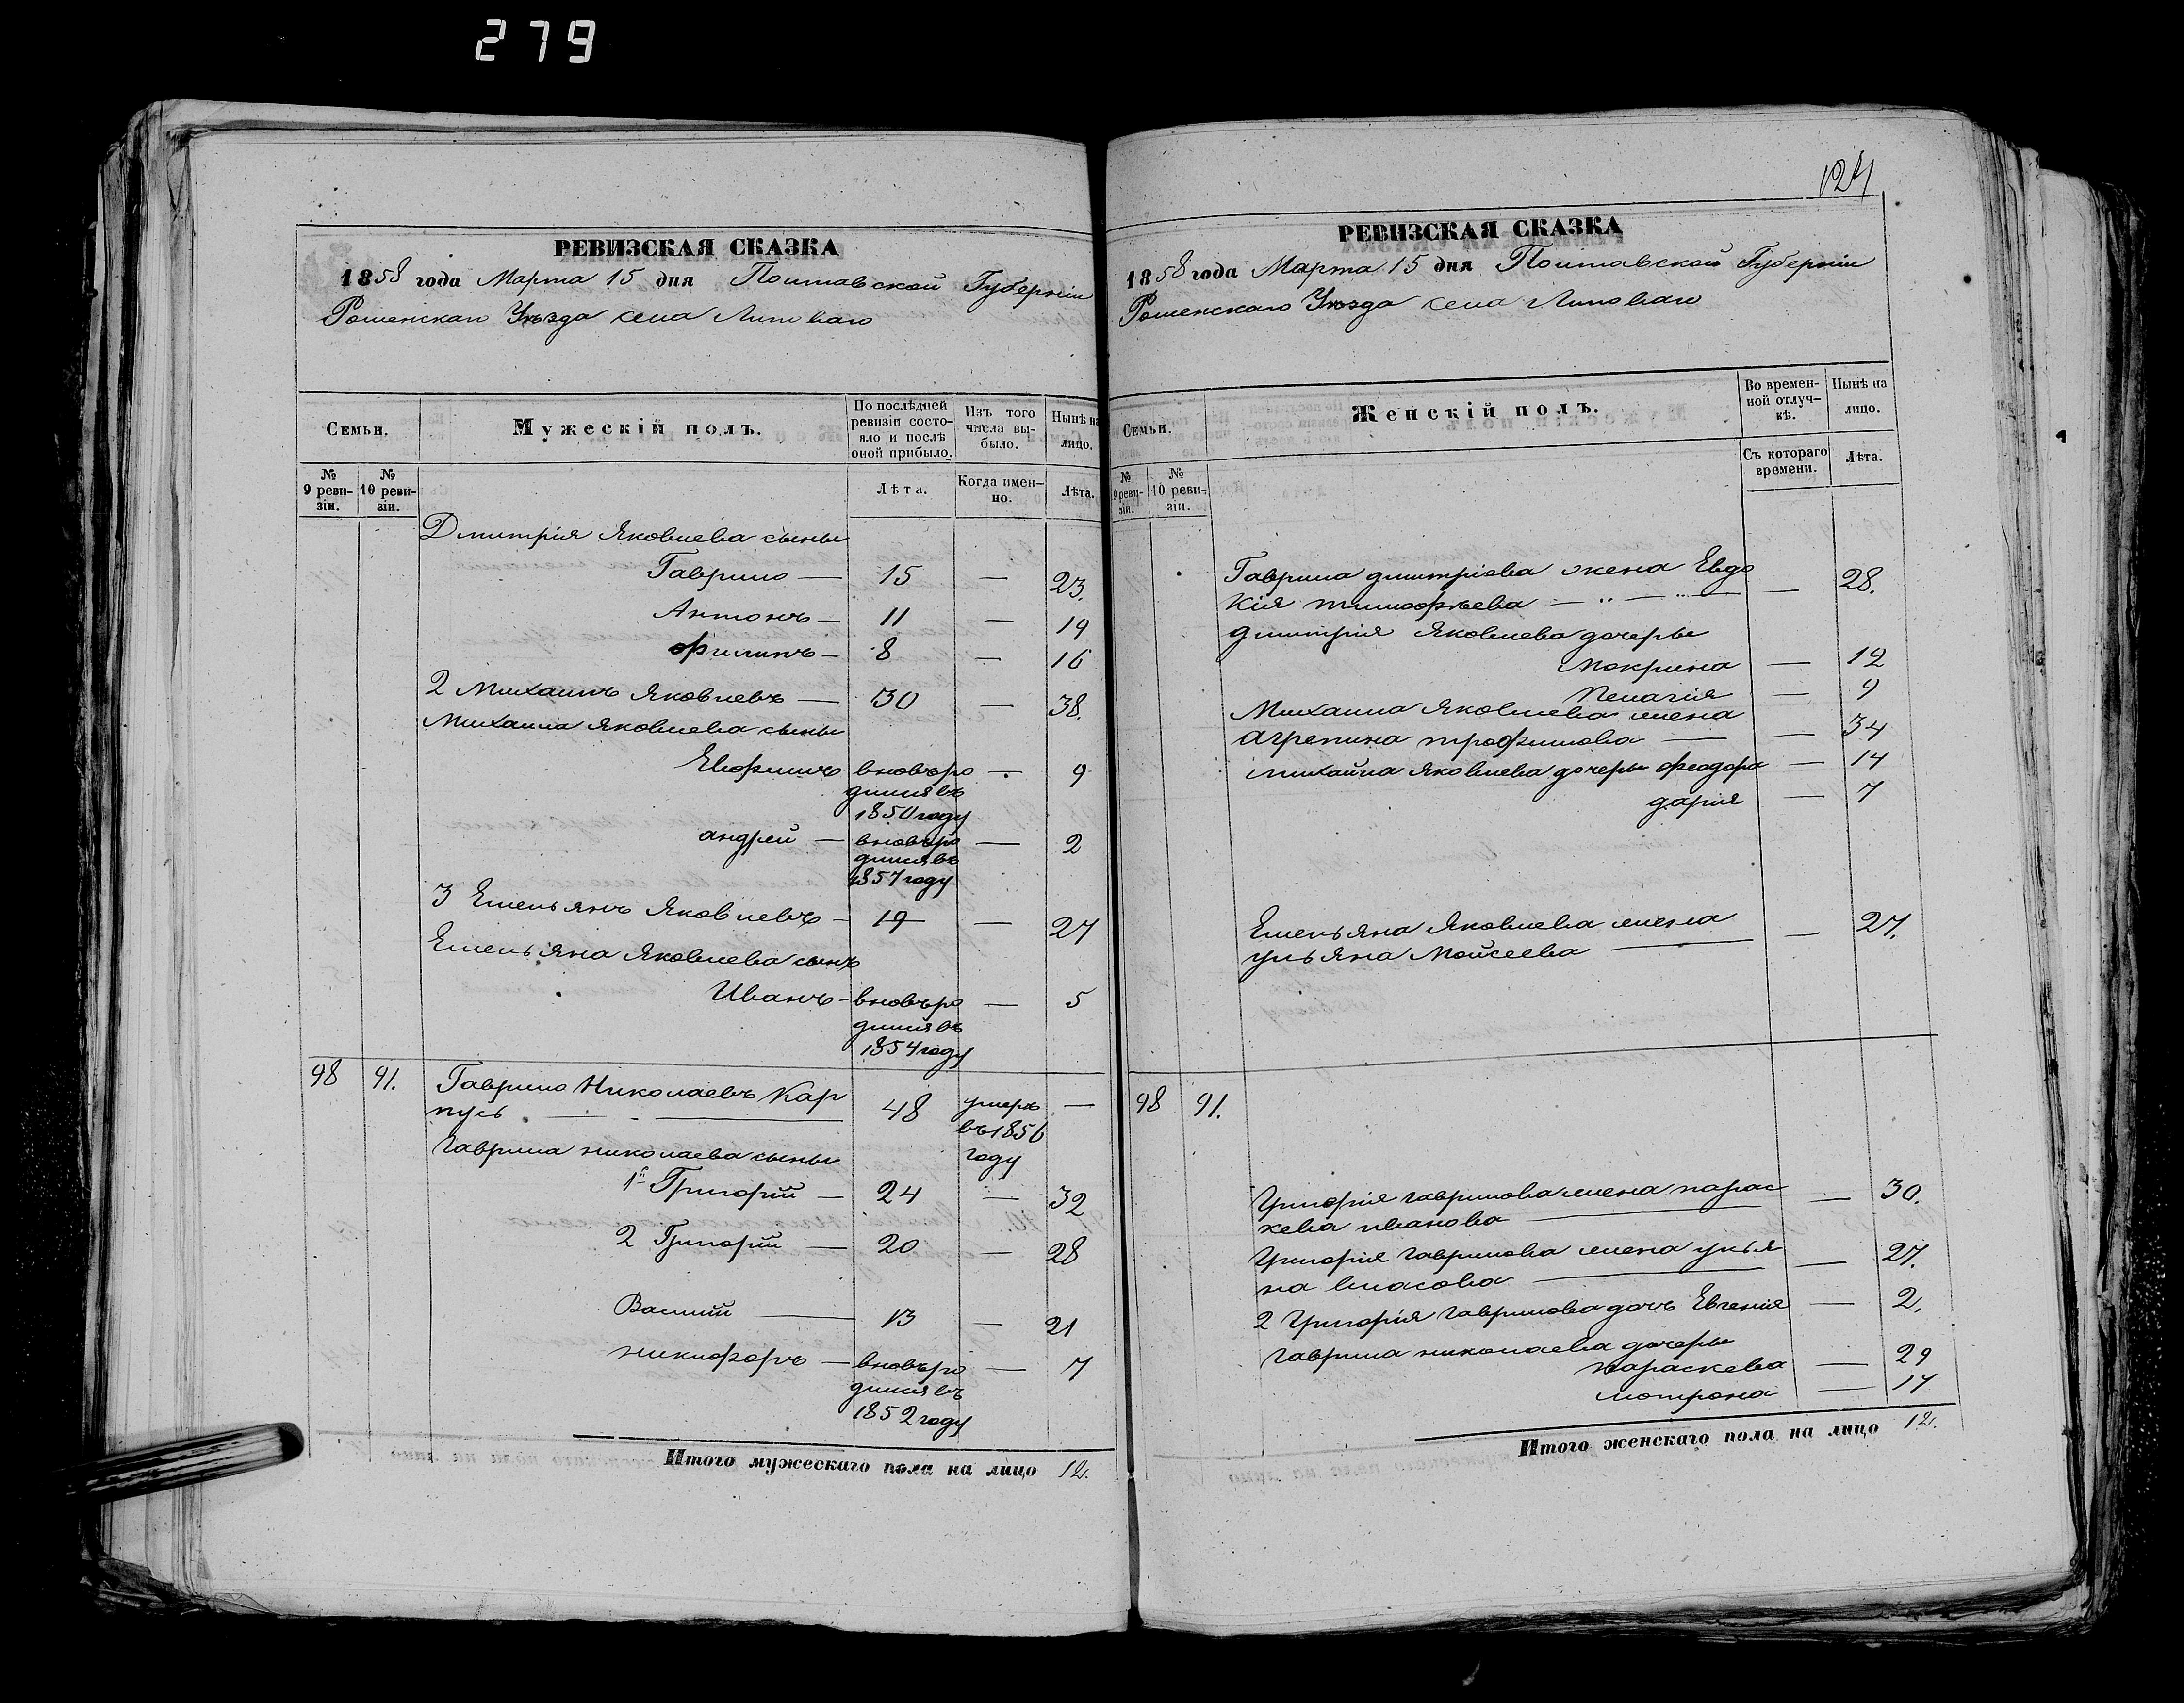 279
РЕВИЗСКАЯ СКАЗКА
1858 года Марта 15 дня Полтавской Губерніи
Роменскаго Уѣзда села Липоваго
Семьи.
Мужескій полъ.
По послѣдней ревизіи состояло и послѣ оной прибыло.
Изъ того числа выбыло.
Нынѣ на лицо.
№ 9 ревизіи.
№ 10 ревизіи.
Лѣта.
Когда именно.
Лѣта.
Дмитрія Яковлева сыны
Гаврило — 15 — 23.
Антонъ — 11 — 19
Филипъ — 8 — 16
2 Михаилъ Яковлевъ — 30 — 38.
Михаила Яковлева сыны
Евфимъ вновьро — 9
дился въ
1850 году
андрей — вновьро — 2
дился въ
1857 году
3 Емельянъ Яковлевъ — 19 — 27
Емельяна Яковлева сынъ
Иванъ — вновьро — 5
дился въ
1854 году
98 91. Гаврило Николаевъ Кар
пусь — 48 умеръ —
въ 1856
году
Гаврила николаева сыны
1й Григорій — 24 — 32
2 Григорій — 20 — 28
Василій — 13 — 21
никифоръ — вновьро — 7
дился въ
1852 году
Итого мужескаго пола на лицо 12.
124
РЕВИЗСКАЯ СКАЗКА
1858 года Марта 15 дня Полтавской Губерніи
Роменскаго Уѣзда села Липоваго
Семьи.
Женскій полъ.
Во временной отлучкѣ.
Нынѣ на лицо.
№ 9 ревизіи.
№ 10 ревизіи.
Съ котораго времени.
Лѣта.
Гаврила дмитріева жена Евдо
кія тимофѣева — „ — „ — — 28.
дмитрія Яковлева дочеры
мокрина — 12
Пелагія — 9
Михаила Яковлева жена
агрепина трофимова — — 34
михайла Яковлева дочеры феодора — 14
дарія — 7
Емельяна Яковлева жена
ульяна Мойсеева — — 27.
98 91.
Григорія гаврилова жена парас
кева иванова — — 30.
Григорія гаврилова жена улья
на власова — — 27.
2 Григорія гаврилова дочь Евгенія — 2.
гаврила николаева дочеры
параскева — 29
мотрона — 17
Итого женскаго пола на лицо 12.